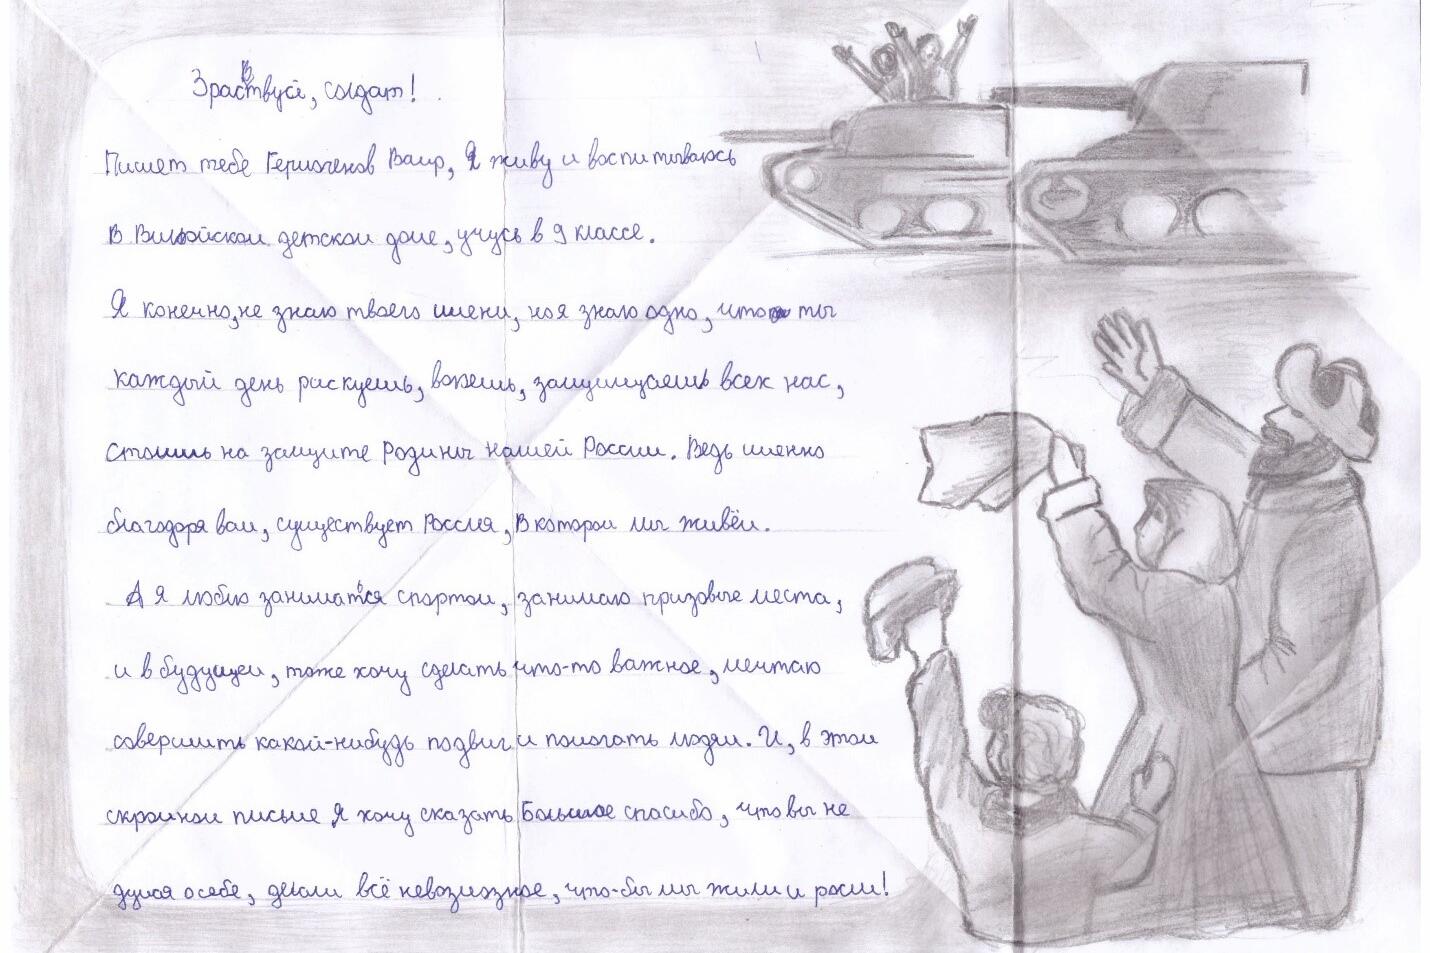 Зраствуй, солдат!
Пишет тебе Гермогенов Ваир, Я живу и воспитываюсь
в Вилюйском детском доме, учусь в 9 классе.
Я конечно, не знаю твоего имени, но я знаю одно, что ты
каждый день рискуешь, воюешь, защищаешь всех нас,
стоишь на защите Родины нашей России. Ведь именно
благодоря вам, существует Россия, в которой мы живём.
А я люблю заниматься спортом, занимаю призовые места,
и в будущем, тоже хочу сделать что-то важное, мечтаю
совершить какой-нибудь подвиг и помогать людям. И, в этом
скромном письме я хочу сказать Большое спасибо, что вы не
думая о себе, делали всё невозможное, что-бы мы жили и росли!